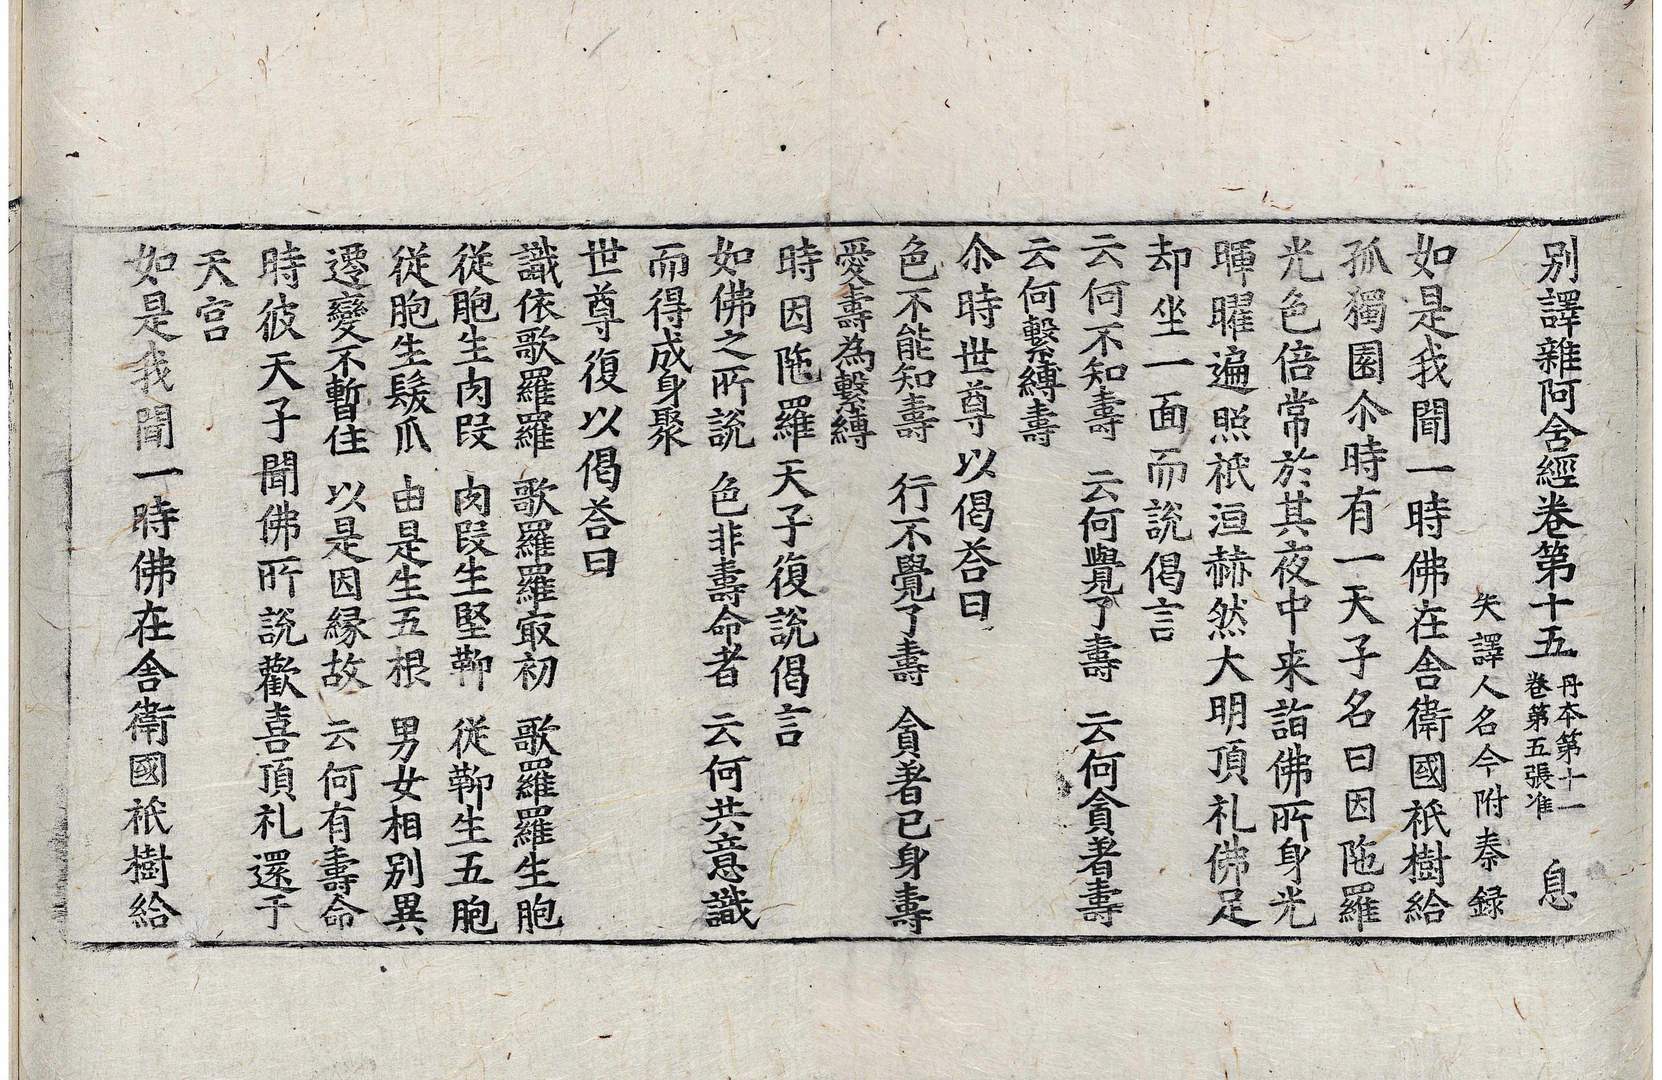 别譯雜阿含經卷第十五 丹本第十一卷第五張准 息
失譯人名今附秦録
如是我聞一時佛在舎衛國祇樹給
孤獨園尒時有一天子名曰因陁羅
光色倍常於其夜中来詣佛所身光
暉曜遍照祇洹赫然大明頂礼佛足
却坐一面而說偈言
云何不知壽 云何覺了壽 云何貪著壽
云何繫縛壽
尒時世尊以偈荅曰
色不能知壽 行不覺了壽 貪著已身壽
愛壽為繫縛
時因陁羅天子復說偈言
如佛之所說 色非壽命者 云何共意識
而得成身聚
世尊復以偈荅曰
識依歌羅羅 歌羅羅㝡初 歌羅羅生胞
従胞生肉段 肉段生堅鞕 従鞕生五胞
従胞生髮爪 由是生五根 男女相别異
遷變不暫住 以是因縁故 云何有壽命
時彼天子聞佛所說歡喜頂礼還于
天宫
如是我聞一時佛在舎衛國祇樹給